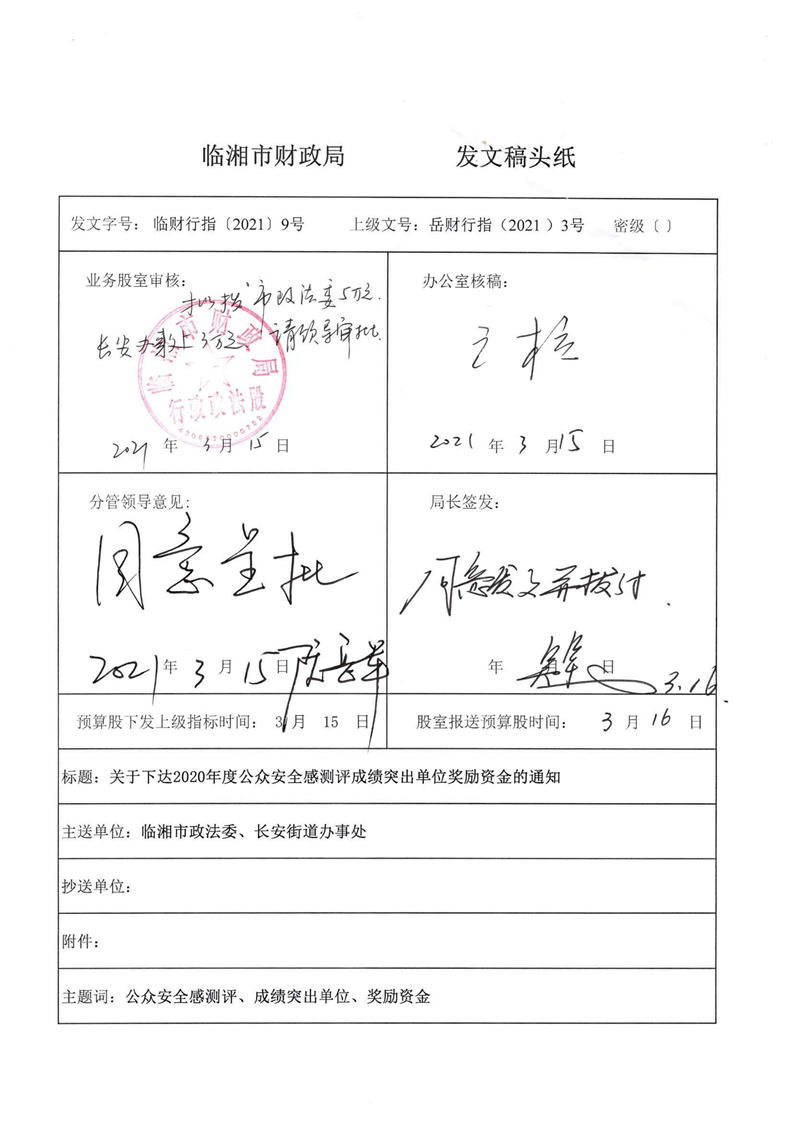 临湘市财政局 发文稿头纸
发文字号： 临财行指〔2021〕9号 上级文号：岳财行指（2021）3号 密级〔 〕
业务股室审核：
拟拨市政法委5万元.
长安办事处3万元. 请领导审批.
临湘市财政局
行政政法股
2021 年 3 月 15 日
办公室核稿：
已核
2021 年 3 月 15 日
分管领导意见：
同意呈批
2021 年 3 月 15 日
局长签发：
同意发文并拨付.
年 月 日
3.16.
预算股下发上级指标时间： 3月 15 日 股室报送预算股时间： 3 月 16 日
标题：关于下达2020年度公众安全感测评成绩突出单位奖励资金的通知
主送单位：临湘市政法委、长安街道办事处
抄送单位：
附件：
主题词：公众安全感测评、成绩突出单位、奖励资金